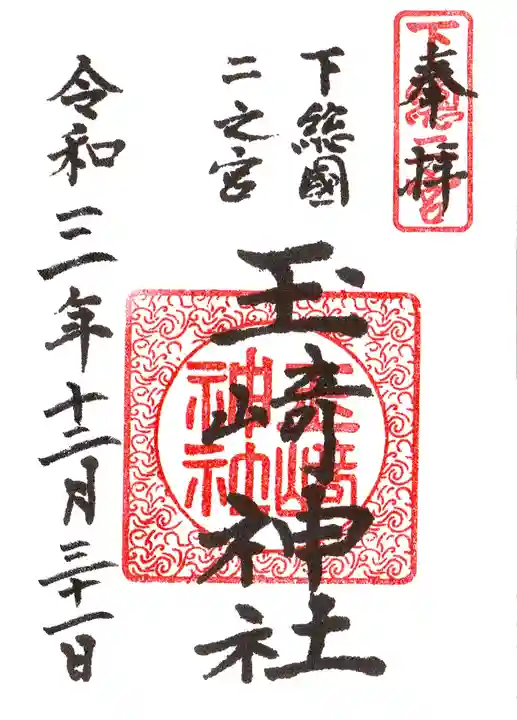 奉拝
下総二宮
下総國
二之宮
玉崎神社
玉崎
神社
令和三年十二月三十一日